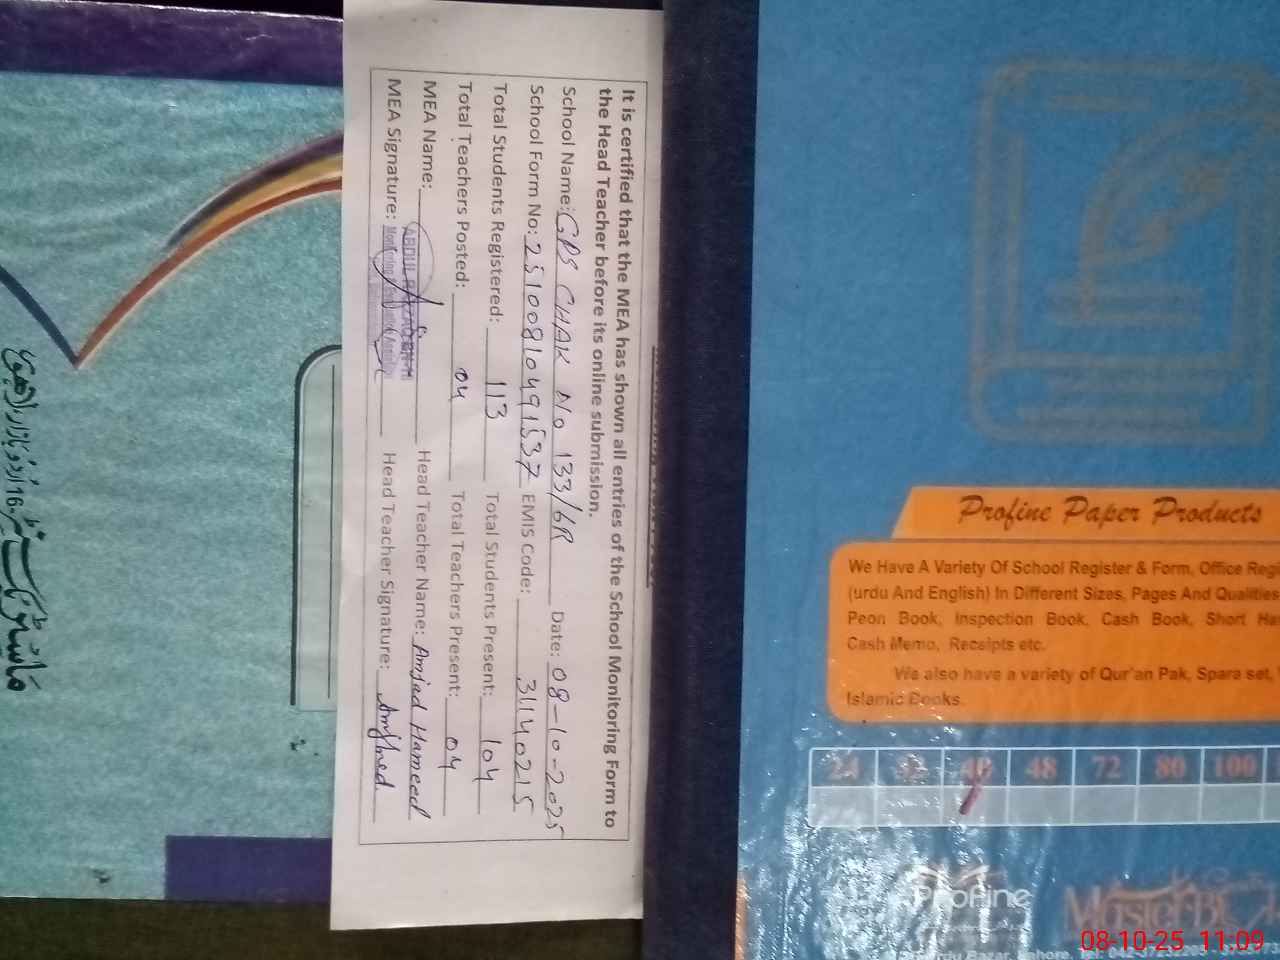 It is certified that the MEA has shown all entries of the School Monitoring Form to
the Head Teacher before its online submission.
School Name: GPS CHAK NO 133/6R Date: 08-10-2025
School Form No: 25100810491537 EMIS Code: 31140215
Total Students Registered: 113 Total Students Present: 104
Total Teachers Posted: 04 Total Teachers Present: 04
MEA Name: ABDUL Head Teacher Name: Amjad Hameed
MEA Signature: Head Teacher Signature:
Profine Paper Products
We Have A Variety Of School Register & Form, Office
(urdu And English) In Different Sizes, Pages And Qualities
Peon Book, Inspection Book, Cash Book, Short
Cash Memo, Receipts etc.
We also have a variety of Qur'an Pak, Spara set,
Islamic Books.
24 40 48 72 80 100
ProFine
08-10-25 11:09